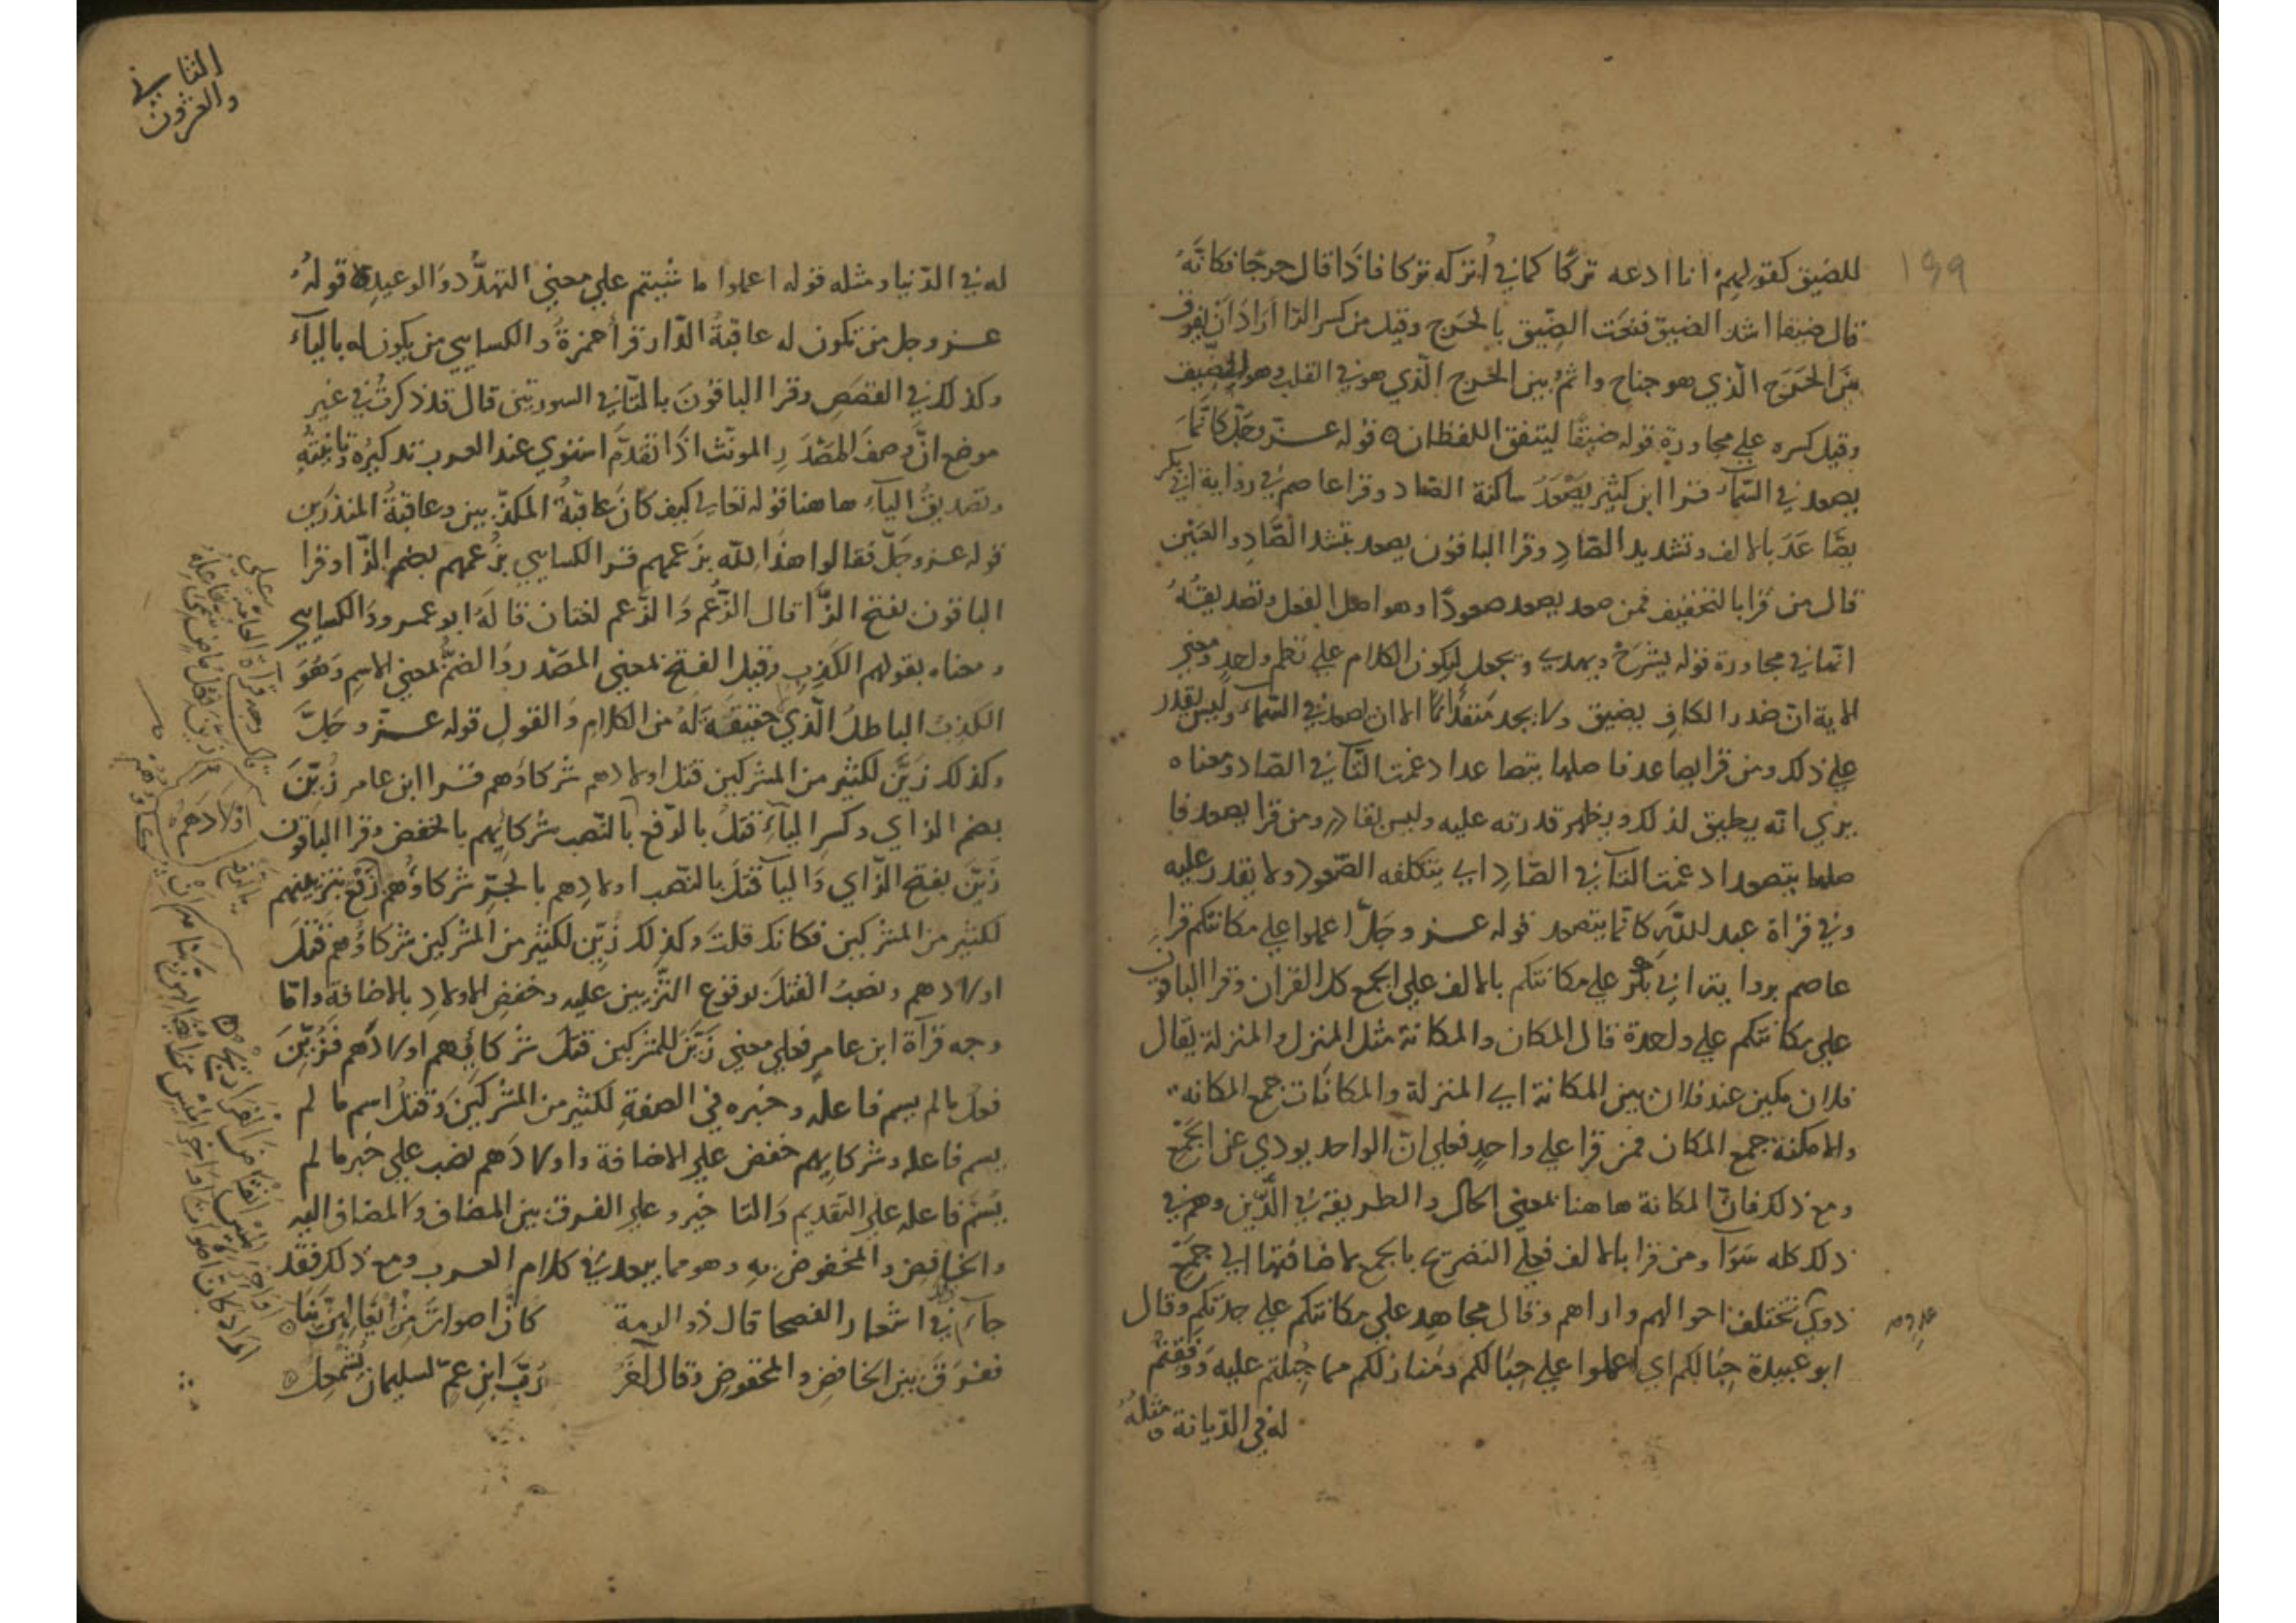 ١٩٩
للضيق كقولهم انا ادعه تركًا كماني أتركه تركا فاذا قال حرجا فكانَّهُ
قال ضيقا اشد الضيق فنعت الضّيق بالحَرَج وقيل من كسر الرّا ارادَ ان يفرق
بين الحَرَج الّذي هو جناح واثم وبين الحرج الّذي هو في القلب وهو الضيق
وقيل كسره على مجاورة قوله ضيقًا ليتفق اللفظان ٥ قوله عزّ وجلّ كانّمَا
يصعد في السّمآء قرا ابن كثير يَصْعَدُ ساكنة الصّاد وقرا عاصم في رواية ابي بكر
يصّاعَدَ بالالف وتشديد الصّادِ وقرا الباقون يصعد بتشد الصّادِ والعين
قال من قرا بالتخفيف فمن صعد يصعد صعودًا وهو اصل الفعل وتصديقُهُ
انّه اتي مجاورة قوله يشرحْ ويهدي ويجعل ليكون الكلام على نظم واحد ومعنى
الاية انّ صدر الكافِر يضيق ولا يجد مَنفذًا الا ان يصعد في السّمآء وليس يقدر
على ذلك ومن قرا يصاعد فاصلها يتصاعد ادغمت التّآ في الصّاد ومعناه
يري انّه يطيق لذلك ويظهر قدرته عليه وليس بقادر ومن قرا يصعد فا
صلها يتصعد ادغمت التآ في الصّادِ اي يتكلفه الصّعود ولا يقدر عليه
وفي قراة عبد اللّهِ كانّما يتصعد قوله عز وجَلّ اعملوا على مكانتكم قرا
عاصم برواية ابي بكر على مكانتكم بالالف على الجمع كل القرآن وقرا الباقون
على مكانتكم على واحدة قال المكان والمكانة مثل المنزل والمنزلة يقال
فلان مكين عند فلان بين المكانة اي المنزلة والمكانات جمع المكانه
والامكنة جمع المكان فمن قرا على واحدٍ فعلى انّ الواحد يودي عن الجَمْع
ومع ذلك فانّ المكانة هاهنا بمعنى الحال والطريقة في الّدين وهم في
ذلك كله سَوَآ ومن قرا بالالف فعلى التصريح بالجمع لاضافتها الى جَمْع
ذوي تختلف احوالهم واراهم وقال مجاهد على مكانتكم على جدتكم وقال
ابو عبيدة حِيَالكم اي اعملوا على حِيَالكم ومنازلكم مما جُبلتم عليه ووفقتمْ
له في الدّيانة ومثلُهُ
الثاني
والعشرون
له في الدّنيا ومثله قوله اعملوا ما شئيتم على معنى التهدُّد والوعيد ٥ قولهُ
عز وجل من تكون له عاقبةُ الدّار قرأ حمزةُ والكسايي من يكون له باليآء
وكذلك في القصَصِ وقرا الباقونَ بالتّا في السورتين قال قد ذكرتُ في غير
موضع انّ وصف المصْدَرِ المونّث اذا تقدّمَ استوي عند العرب تذكيرُه وتانيثهُ
وتصديق اليآء هاهنا قوله تعالى كيف كانَ عاقبةُ المكذّبين وعاقبَةُ المنذرَين
قوله عز وجَلّ فقالوا هذا للّه بزَعمهم قرا الكسايي بزُعمهم بضم الزّا وقرا
الباقون بفتح الزّا قال الزَّعم وَالزُّعم لغتان قالهُ ابو عمرو وَالكسايي
ومعناه بقولهم الكَذِب وقيل الفتح بمعنى المصْدر والضمُّ بمعنى الاسم وَهُوَ
الكذِب الباطلُ الّذي لا حقيقَةَ لهُ من الكلامِ وَالقولِ قوله عزّ وجَلَّ
وكذلك زَيَّن لكثير من المشركين قتل اولادهم شركاوُهم قرا ابن عامر زُيّنَ
بضم الزاي وكسر اليآء قتلُ بالرّفع بالنّصب شركايِهم بالخفض وقرا الباقون
زَيَّنَ بفتح الزّاي وَاليآ قتلَ بالنّصب اولادِهم بالجّرِ شركاوُهم رفع بتزيينهم
لكثيرٍ من المشركين فكانك قلتَ وكذلك زيّن لكثير من المشركين شركاوُهم قتلَ
اولادهم ونصبُ القتلَ لوقوع التّزيين عليه وخفض الاولادِ بالاضافة وامّا
وجه قرآة ابن عامرٍ فعلي معنى زُيّنَ للمشركين قتلُ شركائِهم اولادَهم فزُيّنَ
فعلُ مالم يسم فاعلهُ وخبره في الصفةِ لكثيرٍ من المشركينَ وقتلُ اسم ما لم
يسم فاعله وشركايِهم خفض على الاضافة واولادَهم نصب على خبر ما لم
يسّم فاعله على التقديم وَالتاخير وعلى الفرق بين المضاف والمضاف اليه
والخافض والمخفوض به وهو مما يبعد في كلام العرب ومع ذلك فقَد
جآء في اشعار الفصحا قال ذو الرمة كانّ اصواتَ مِن ايغالِهنّ بنَا
ففرّق بين الخافض والمخفوضِ وقال آخَرُ رُبَّ ابنِ عمٍّ لسليمان مشمعِل
اولادَهمْ
اواخرِ الميْس انقاض الفراريج
اراد كانّ اصوات اواخر الميس من ايغالهنّ بنا